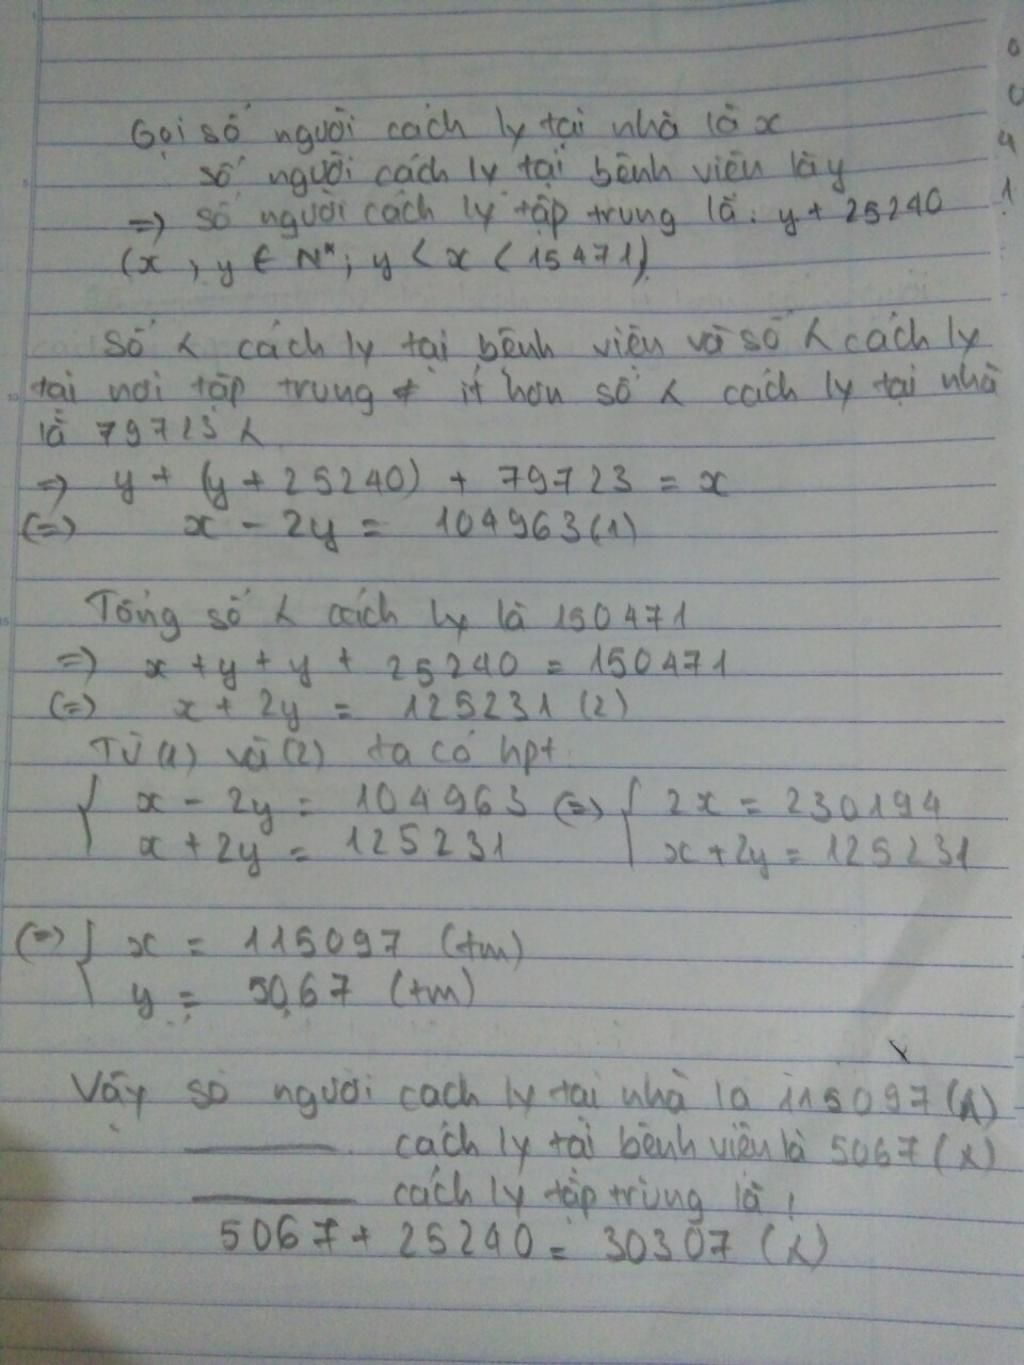 Gọi số người cách ly tại nhà là x
số người cách ly tại bệnh viện là y
=> số người cách ly tập trung là: y + 25240
(x, y ∈ N*; y < x < 15471)
Số λ cách ly tại bệnh viện và số λ cách ly
tại nơi tập trung ít hơn số λ cách ly tại nhà
là 79723 λ
=> y + (y + 25240) + 79723 = x
(=) x - 2y = 104963 (1)
Tổng số λ cách ly là 150471
=) x + y + y + 25240 = 150471
(=) x + 2y = 125231 (2)
Từ (1) và (2) ta có hpt
{ x - 2y = 104963 (=) { 2x = 230194
x + 2y = 125231 x + 2y = 125231
(=) { x = 115097 (tm)
y = 5067 (tm)
Vậy số người cách ly tại nhà là 115097 (λ)
cách ly tại bệnh viện là 5067 (λ)
cách ly tập trung là:
5067 + 25240 = 30307 (λ)